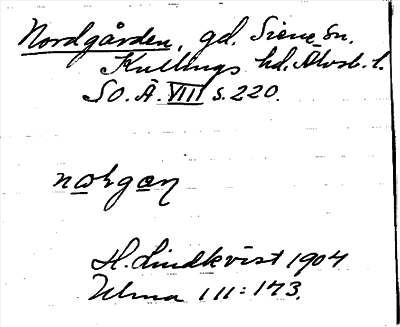 Nordgården, gd. Siene sn.
Kullings hd. Älvsb. l.
SO.Ä. VIII s. 220.
H. Lindkvist 1904
Ulma 111:173.